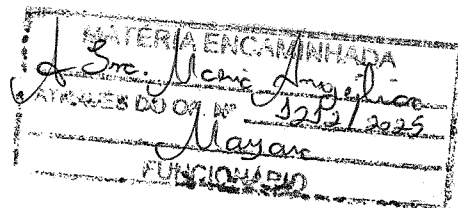 MATÉRIA ENCAMINHADA
A Sra. Maria Angelica
ATRAVÉS DO OF. Nº 1212/2025
Mayara
FUNCIONÁRIO